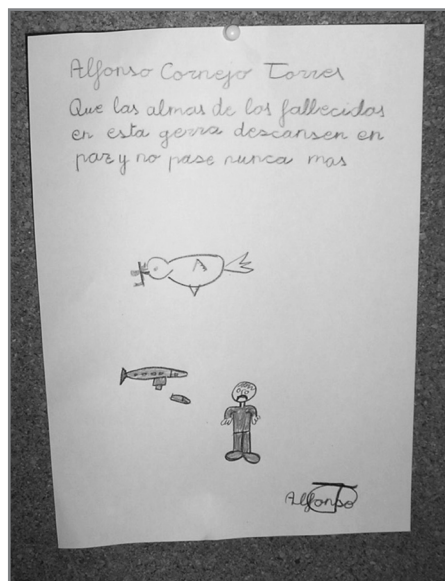 Alfonso Cornejo Torres
Que las almas de los fallecidos
en esta gerra descansen en
paz y no pase nunca mas
Alfonso